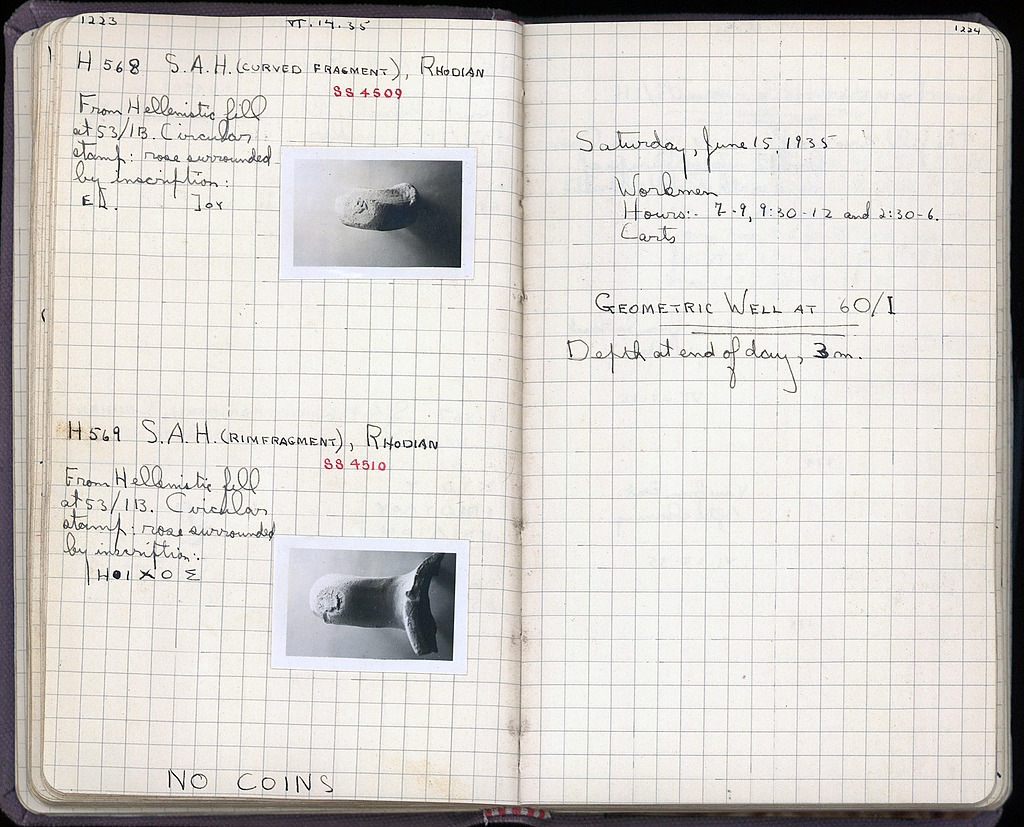 1223
VI.14.35
H 568 S.A.H. (CURVED FRAGMENT), RHODIAN
SS 4509
From Hellenistic fill
at 53/IB. Circular
stamp: rose surrounded
by inscription:
]ου
H 569 S.A.H. (RIM FRAGMENT), RHODIAN
SS 4510
From Hellenistic fill
at 53/IB. Circular
stamp: rose surrounded
by inscription:
NO COINS
1224
Saturday, June 15, 1935
Workmen
Hours:- 7-9, 9:30-12 and 2:30-6.
Carts
GEOMETRIC WELL AT 60/I
Depth at end of day, 3 m.